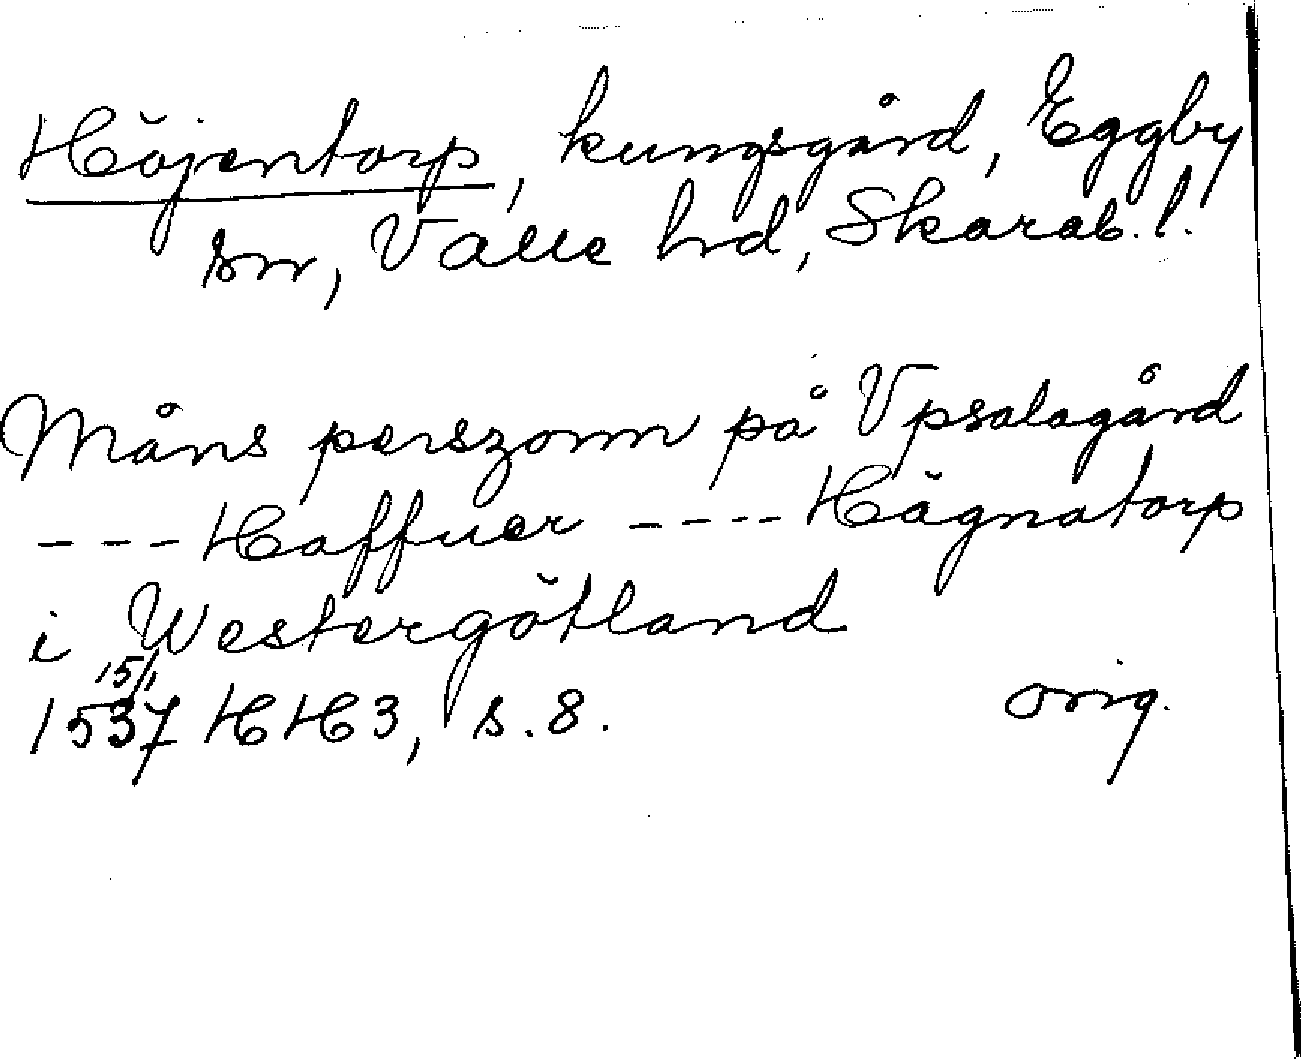 Höjentorp, kungsgård, Eggby
sn, Valle hrd, Skarab. l.
Måns perszonn på Vpsalagård
--- Haffuer ---- Högnatorp
i Westergötland
15/1
1537 HH3, s. 8. orig.